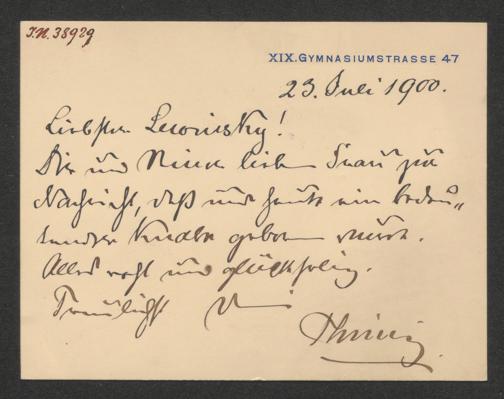 I.N. 38929
XIX. GYMNASIUMSTRASSE 47
23. Juli 1900.
Liebster Lewinsky!
Dir und Deiner lieben Frau zur
Nachricht, daß uns heute ein bedeu„
tender Knabe geboren wurde.
Alles wohl und glückselig.
Treulichst Dein